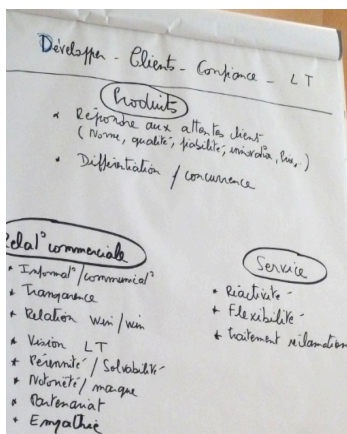 Développer - Clients - Confiance - LT
Produits
* Répondre aux attentes client
(Norme, qualité, fiabilité, innovation, Prix, .)
* Différentiation / concurrence
Relat° commerciale
* Informat°/communicat°
* Transparence
* Relation win/win
* Vision LT
* Pérennité / Solvabilité
* Notoriété / marque
* Partenariat
* Empathie
Service
* Réactivité
* Flexibilité
* traitement réclamation